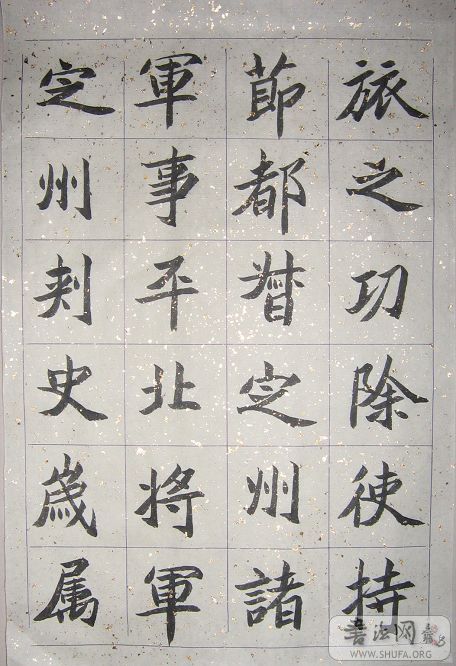 旅之功除使持
節都督定州諸
軍事平北将軍
定州刾史歳属
書法网
WWW.SHUFA.ORG